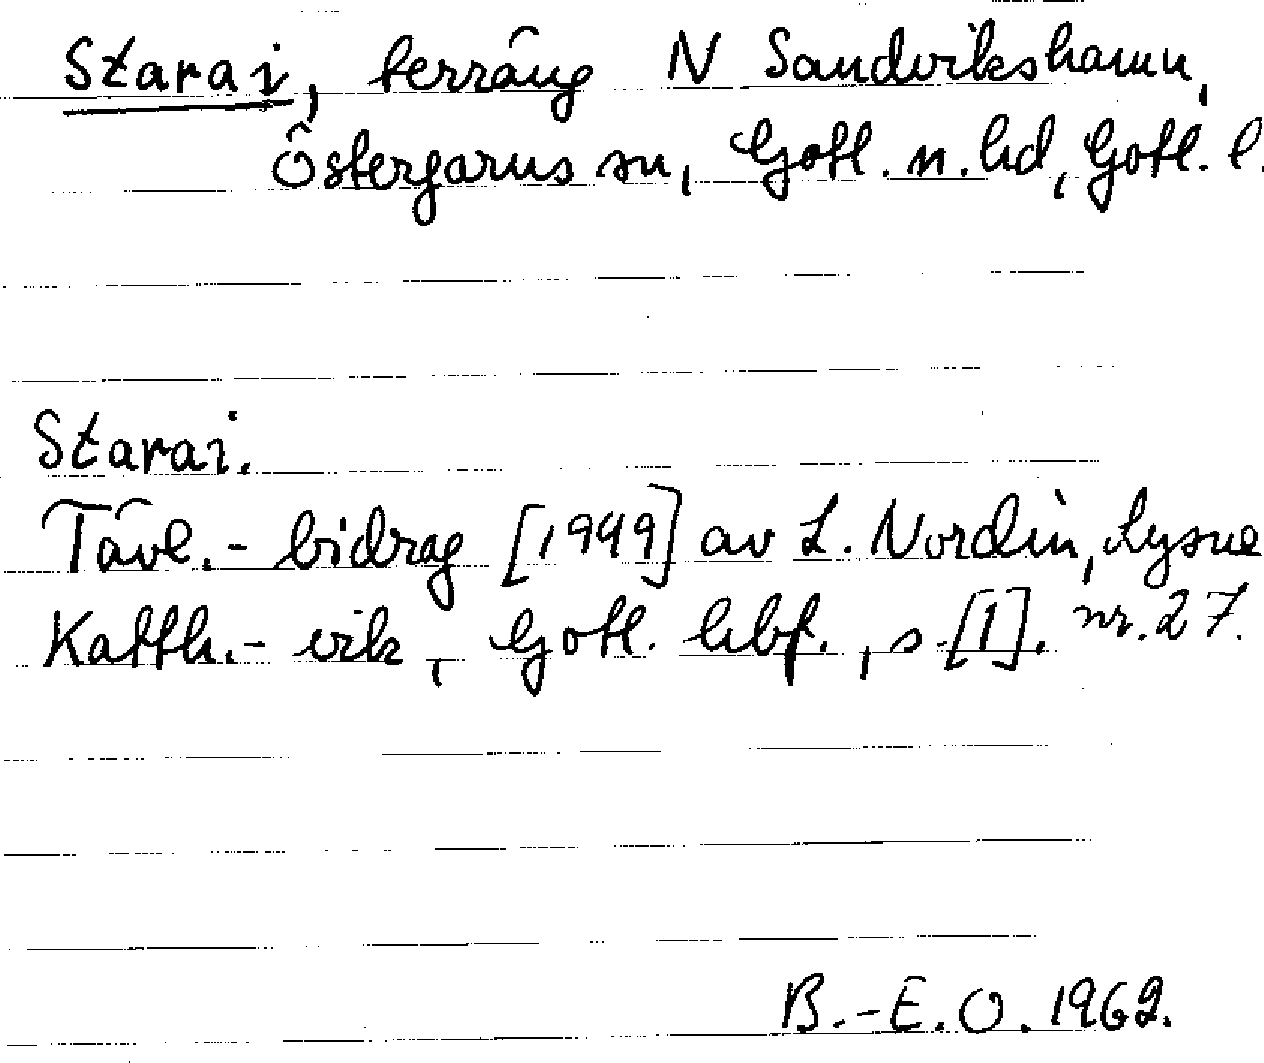 Starai, terräng N Sandvikshamn,
Östergarns sn, Gotl. n. hd, Gotl. l.
Starai.
Tävl.- bidrag [1949] av L. Nordin, Lysne
Katth.- vik, Gotl. hbf., s. [1]. nr. 27.
B.-E. O. 1962.